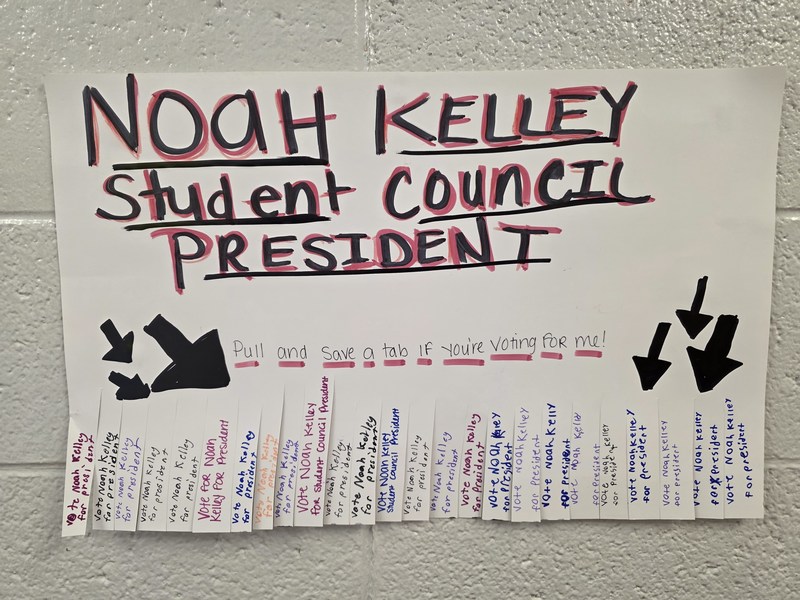 NOAH KELLEY
Student COUNCIL
PRESIDENT
Pull and save a tab IF you're voting for me!
Vote Noah Kelley
for president
Vote Noah Kelley
for president
Vote Noah Kelley
for president
Vote Noah Kelley
for president
Vote Noah Kelley
for president
VOTE FOR NOAH
Kelley FOR President
Vote Noah Kelley
for president
Vote Noah Kelley
for president
Vote Noah Kelley
for president
VOTE NOAH KELLEY
FOR Student Council President
Vote Noah Kelley
for president
Vote Noah Kelley
for president
VOTE NOAH KELLEY
Student Council President
Vote Noah Kelley
for president
Vote Noah Kelley
for president
Vote Noah Kelley
for president
VOTE NOAH Kelley
for President
VOTE NOAH KELLEY
for President
VOTE NOAH Kelly
for President
VOTE NOAH Kelley
for president
Vote Noah Kelley
for president
VOTE NOAH KELLEY
for president
VOTE NOAH KELLEY
for president
VOTE NOAH Kelley
for president
VOTE NOAH Kelley
for president